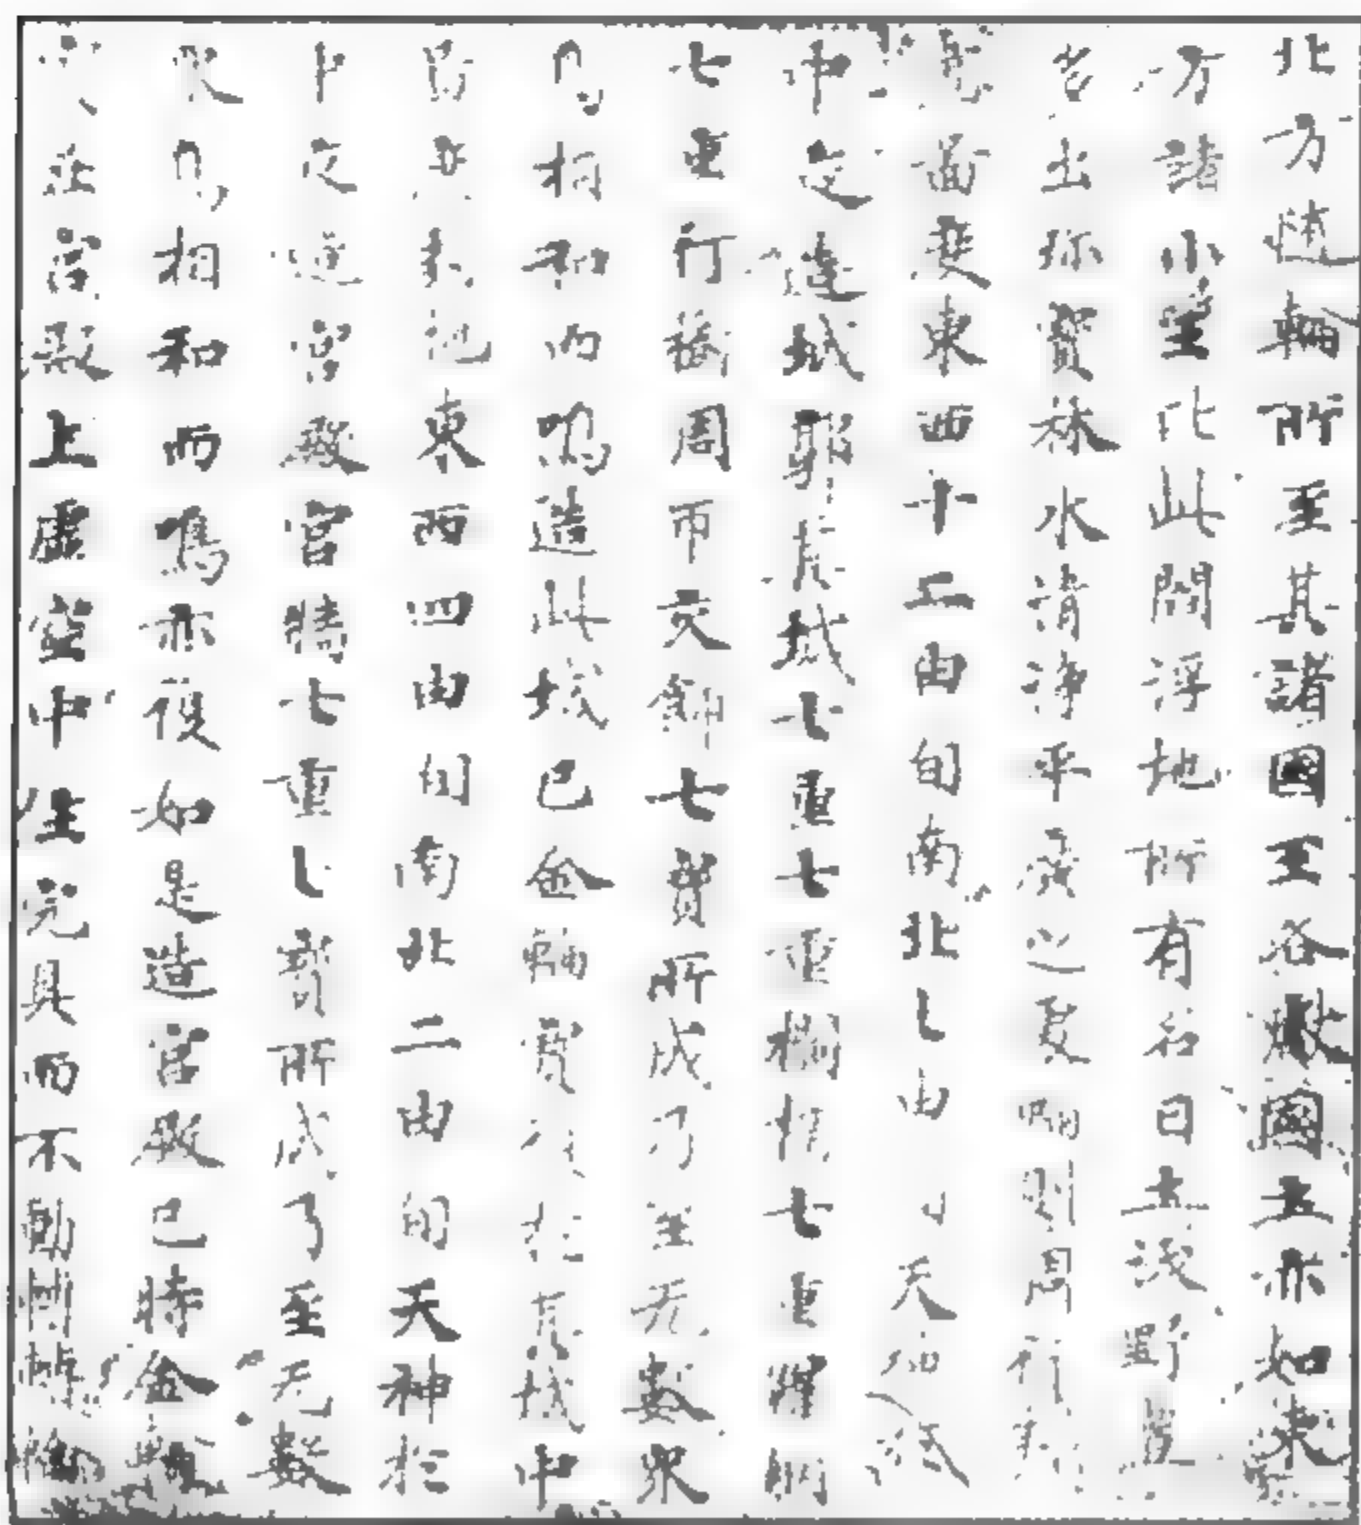 北方随輪所至其諸國王各獻國土亦如東
方諸小王比此閻浮地所有名曰土沃野豊
多出珎寶林水清淨平廣之處輪則周行封
畫面度東西十二由旬南北七由旬天神於
中夜造城郭其城七重七重欄楯七重羅網
七重行樹周帀交飾七寶所成乃至无數衆
鳥相和而鳴造此城已金輪寶復於其城中
圖度封地東西四由旬南北二由旬天神於
中夜造宮殿宮牆七重七寶所成乃至无數
衆鳥相和而鳴亦復如是造宮殿已時金輪
寶在宮殿上虛空中住完具而不動轉轉輪